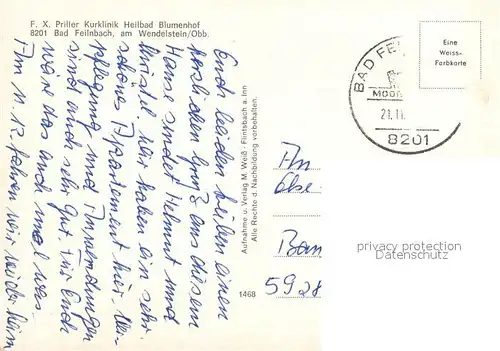 F. X. Priller Kurklinik Heilbad Blumenhof
8201 Bad Feilnbach, am Wendelstein/Obb.
Euch beiden lieben einen
herzlichen Gruß aus diesem
Hause sendet Helmut und
Wir haben ein sehr
schönes Appartement hier.
Pflegung und Anwendungen
sind auch sehr gut. Für Euch
wäre das auch mal was.
Am 11.12. fahren wir wieder heim
Aufnahme u. Verlag M. Weiß · Flintsbach a. Inn
Alle Rechte d. Nachbildung vorbehalten.
1468
Eine
Weiss-
Farbkarte
BAD FEI
MOOR
21.11.
8201
An
Else
5928
privacy protection
Datenschutz